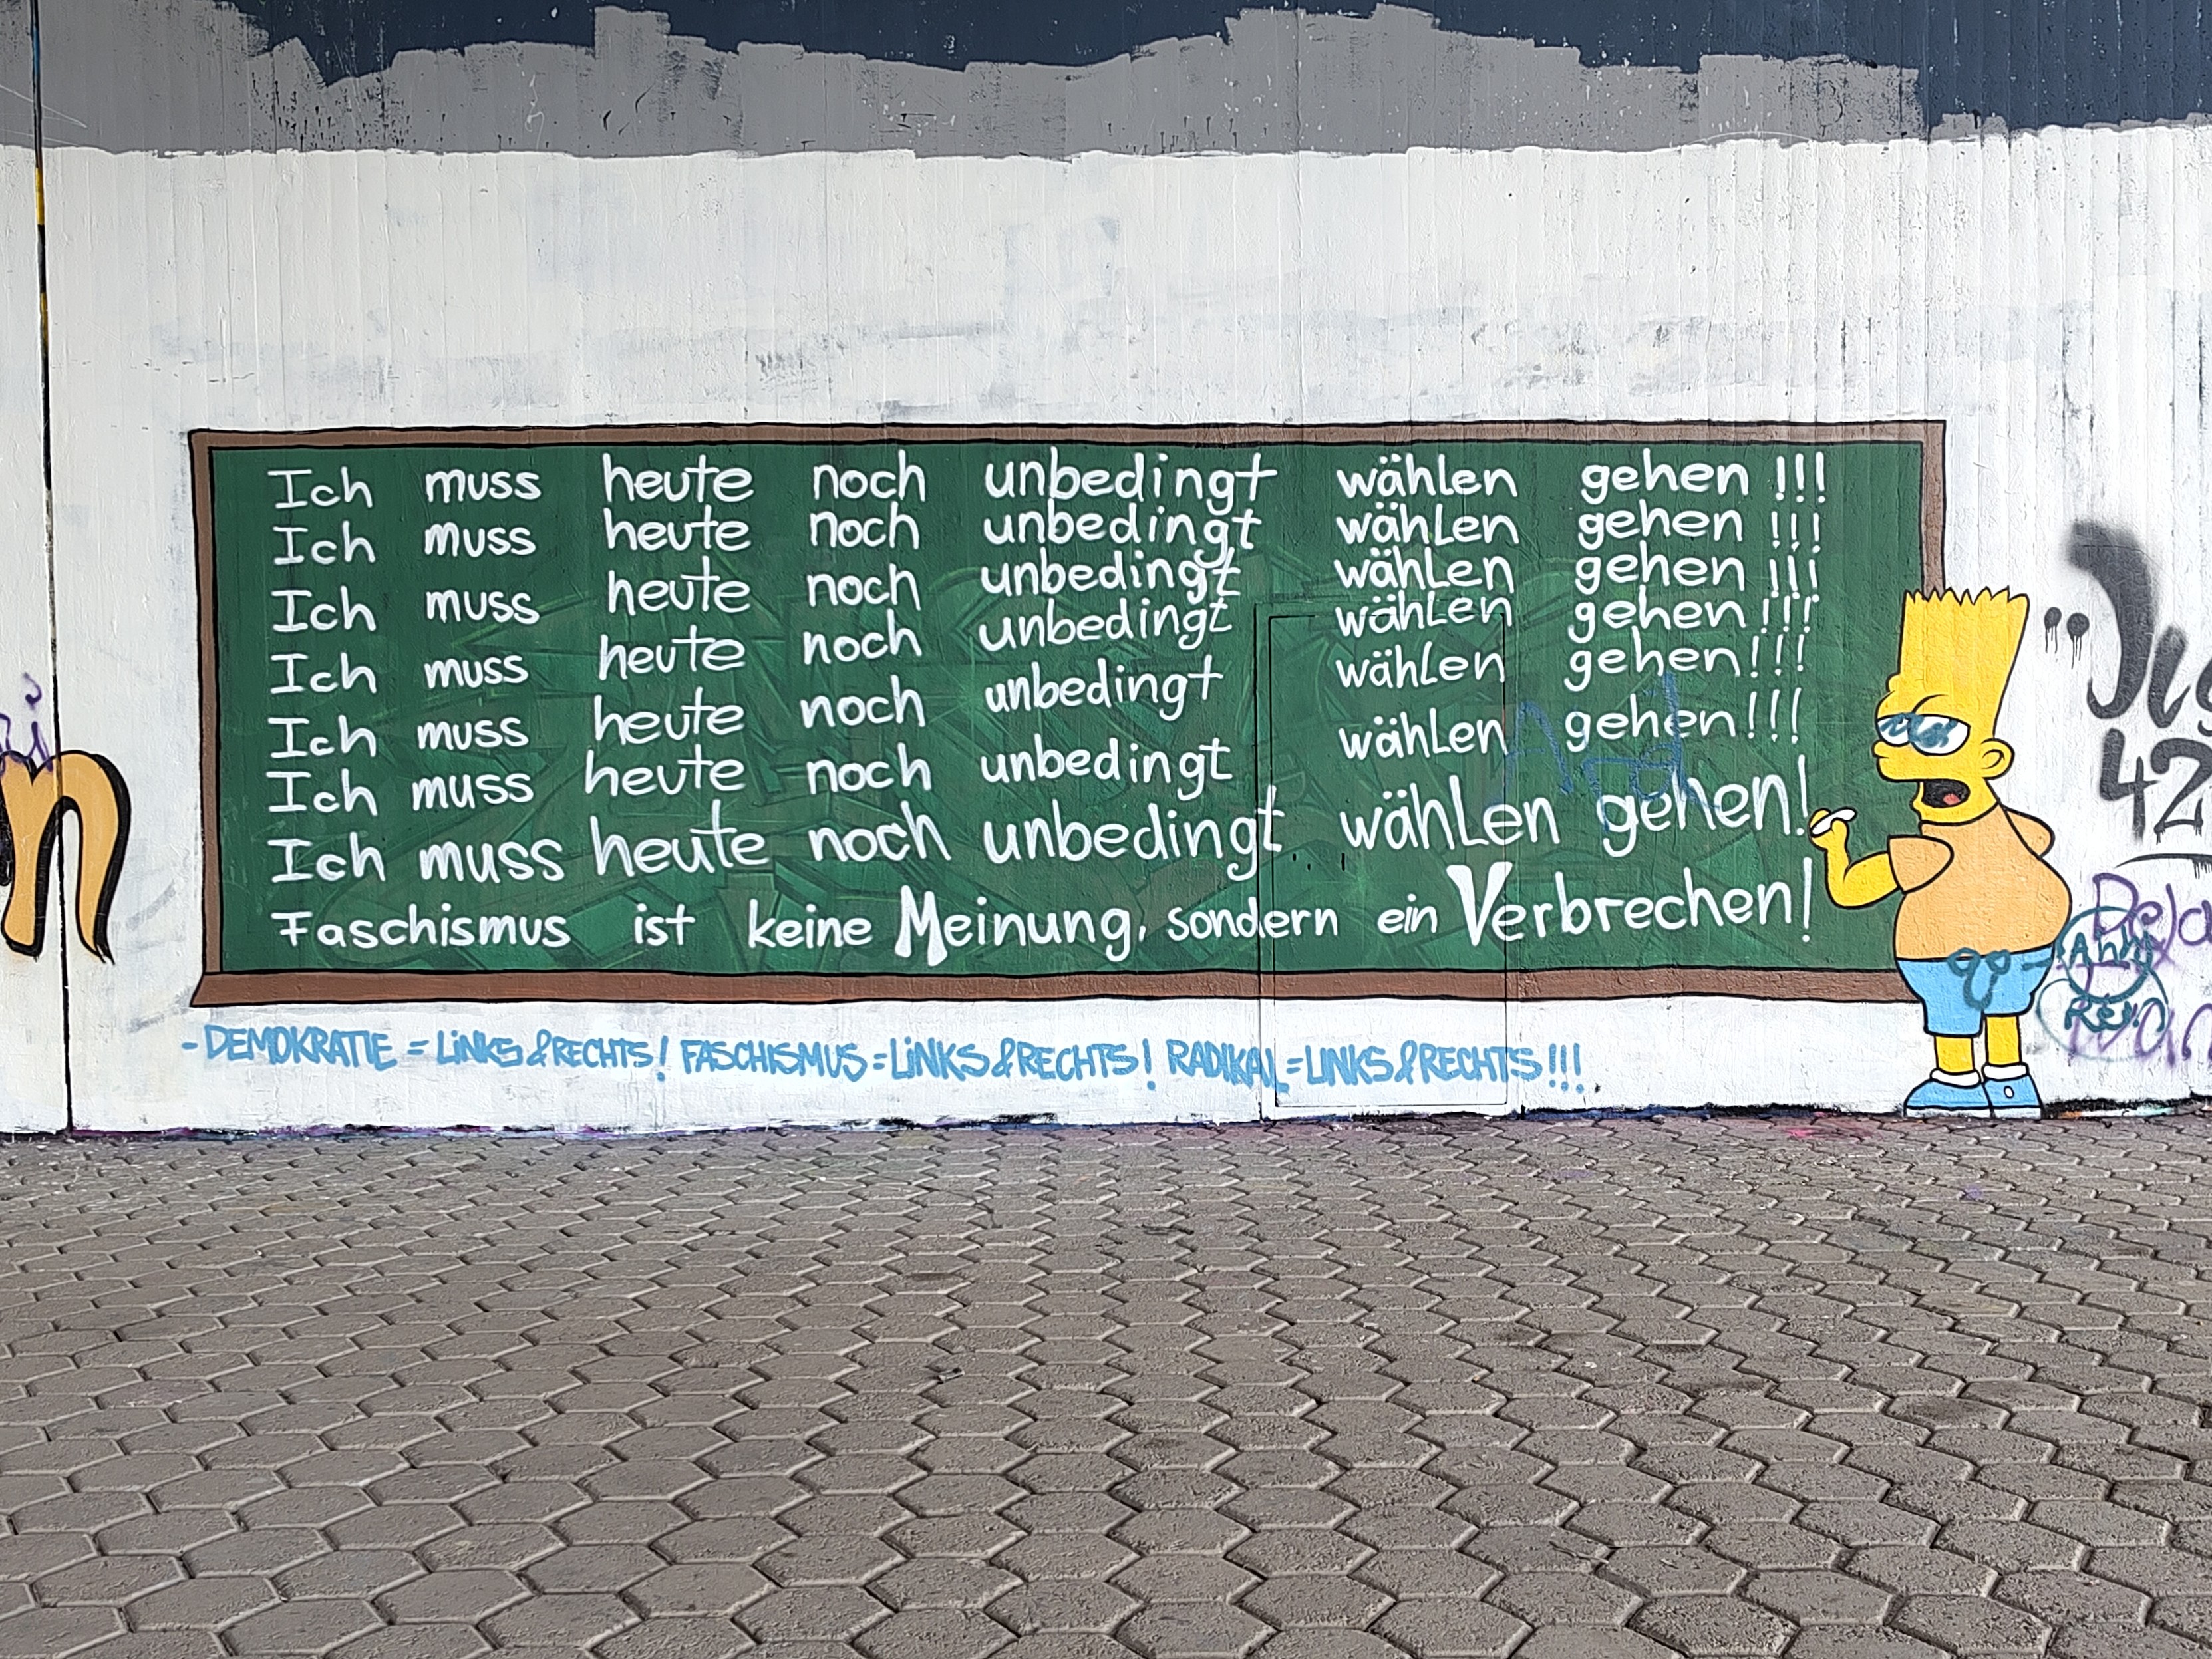 Ich muss heute noch unbedingt wählen gehen!!!
Ich muss heute noch unbedingt wählen gehen!!!
Ich muss heute noch unbedingt wählen gehen!!!
Ich muss heute noch unbedingt wählen gehen!!!
Ich muss heute noch unbedingt wählen gehen!!!
Ich muss heute noch unbedingt wählen gehen!!!
Ich muss heute noch unbedingt wählen gehen!
Faschismus ist keine Meinung, sondern ein Verbrechen!
- DEMOKRATIE = LiNKS & RECHTS! FASCHISMUS = LiNKS & RECHTS! RADIKAL = LINKS & RECHTS!!!
n
42